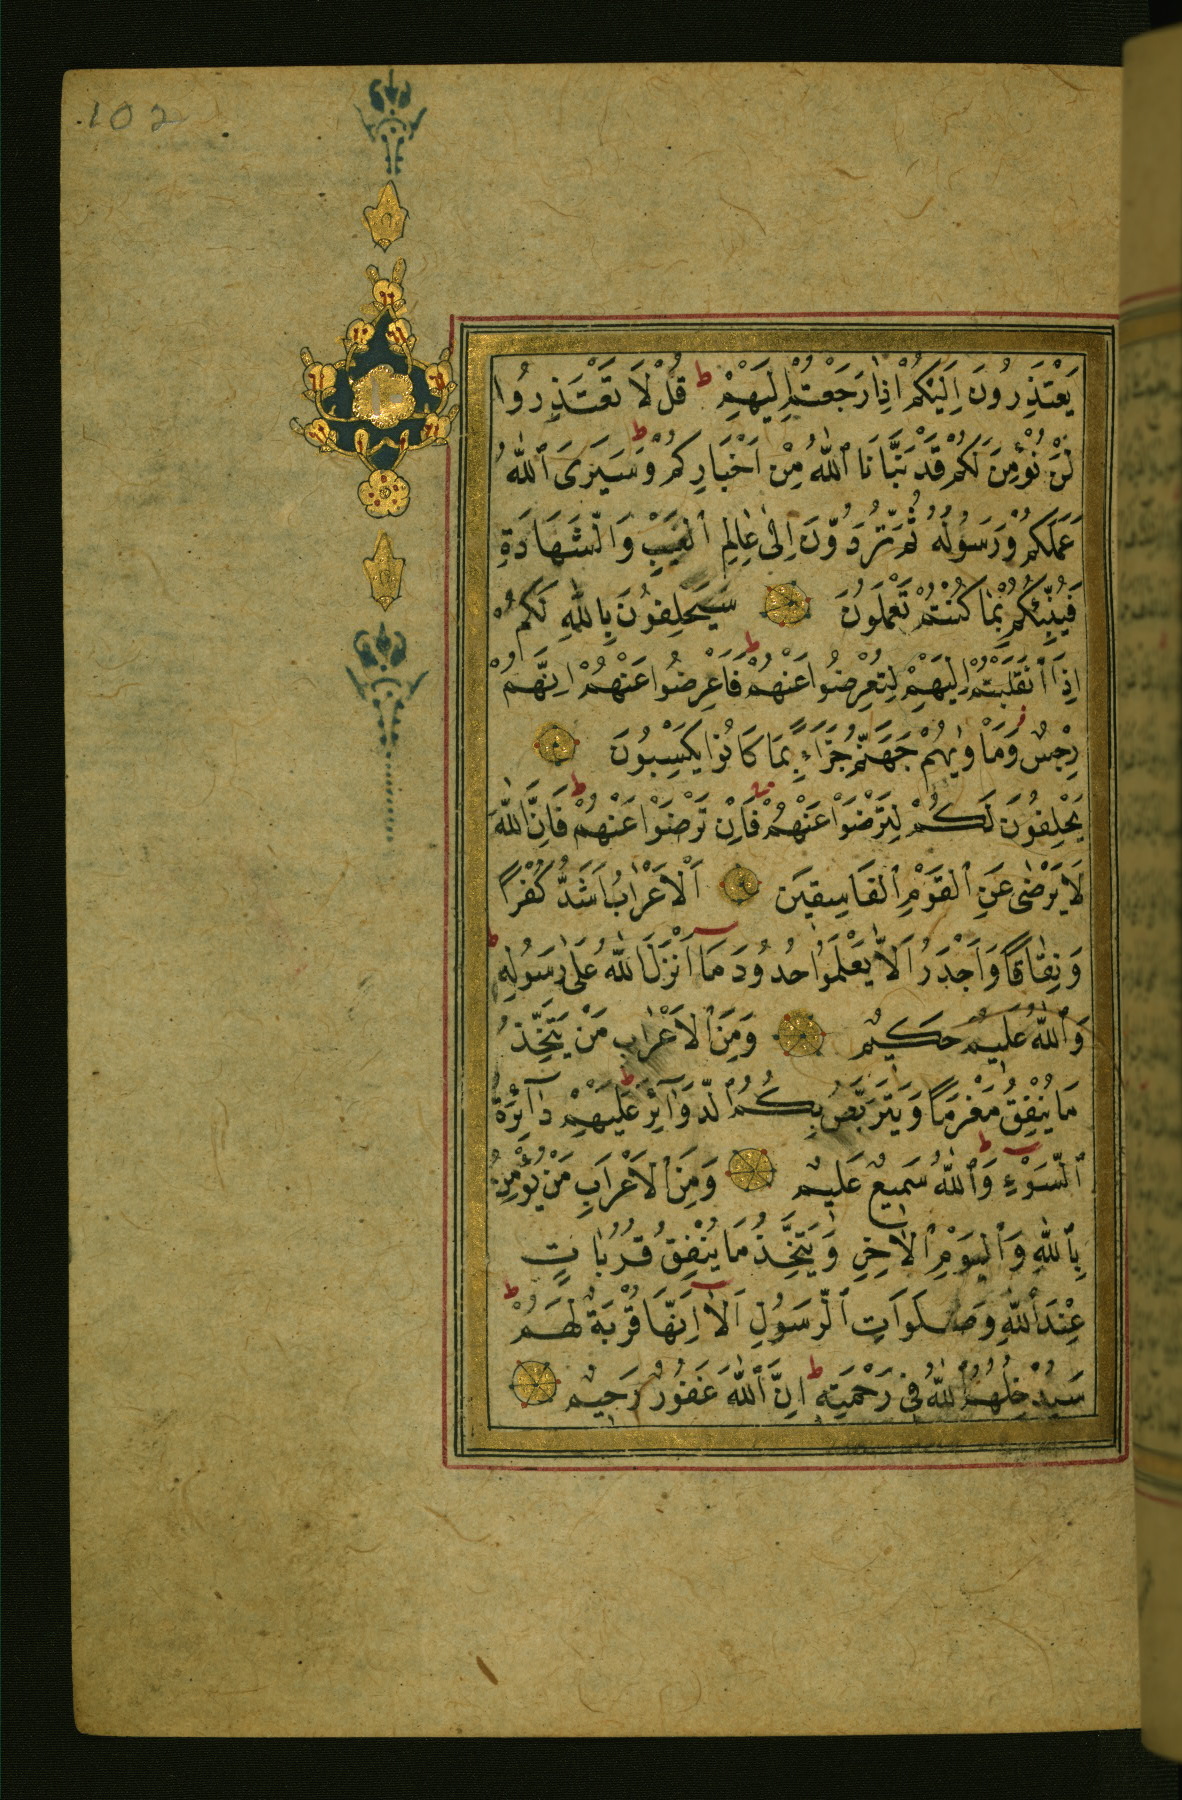 102
يَعْتَذِرُونَ اِلَيْكُمْ اِذَا رَجَعْتُمْ اِلَيْهِمْ ط قُلْ لَا تَعْتَذِرُوا
لَنْ نُؤْمِنَ لَكُمْ قَدْ نَبَّاَنَا ٱللّٰهُ مِنْ اَخْبَارِكُمْ ط وَسَيَرَى ٱللّٰهُ
عَمَلَكُمْ وَرَسُولُهُ ثُمَّ تُرَدُّونَ اِلٰى عَالِمِ ٱلْغَيْبِ وَالشَّهَادَةِ
فَيُنَبِّئُكُمْ بِمَا كُنْتُمْ تَعْمَلُونَ سَيَحْلِفُونَ بِاللّٰهِ لَكُمْ
اِذَا ٱنْقَلَبْتُمْ اِلَيْهِمْ لِتُعْرِضُوا عَنْهُمْ ط فَاَعْرِضُوا عَنْهُمْ اِنَّهُمْ
رِجْسٌ وَمَاْوٰيهُمْ جَهَنَّمُ جَزَاءً بِمَا كَانُوا يَكْسِبُونَ
يَحْلِفُونَ لَكُمْ لِتَرْضَوْا عَنْهُمْ فَاِنْ تَرْضَوْا عَنْهُمْ ط فَاِنَّ اللّٰهَ
لَا يَرْضٰى عَنِ ٱلْقَوْمِ ٱلْفَاسِقِينَ اَلْاَعْرَابُ اَشَدُّ كُفْرًا
وَنِفَاقًا وَاَجْدَرُ اَلَّا يَعْلَمُوا حُدُودَ مَا اَنْزَلَ اللّٰهُ عَلٰى رَسُولِهِ ط
وَٱللّٰهُ عَلِيمٌ حَكِيمٌ وَمِنَ ٱلْاَعْرَابِ مَنْ يَتَّخِذُ
مَا يُنْفِقُ مَغْرَمًا وَيَتَرَبَّصُ بِكُمُ ٱلدَّوَآئِرَ ط عَلَيْهِمْ دَآئِرَةُ
ٱلسَّوْءِ ط وَٱللّٰهُ سَمِيعٌ عَلِيمٌ وَمِنَ ٱلْاَعْرَابِ مَنْ يُؤْمِنُ
بِٱللّٰهِ وَٱلْيَوْمِ ٱلْاٰخِرِ وَيَتَّخِذُ مَا يُنْفِقُ قُرُبَاتٍ
عِنْدَ ٱللّٰهِ وَصَلَوَاتِ ٱلرَّسُولِ اَلَا اِنَّهَا قُرْبَةٌ لَهُمْ ط
سَيُدْخِلُهُمُ ٱللّٰهُ فِى رَحْمَتِهِ ط اِنَّ ٱللّٰهَ غَفُورٌ رَحِيمٌ